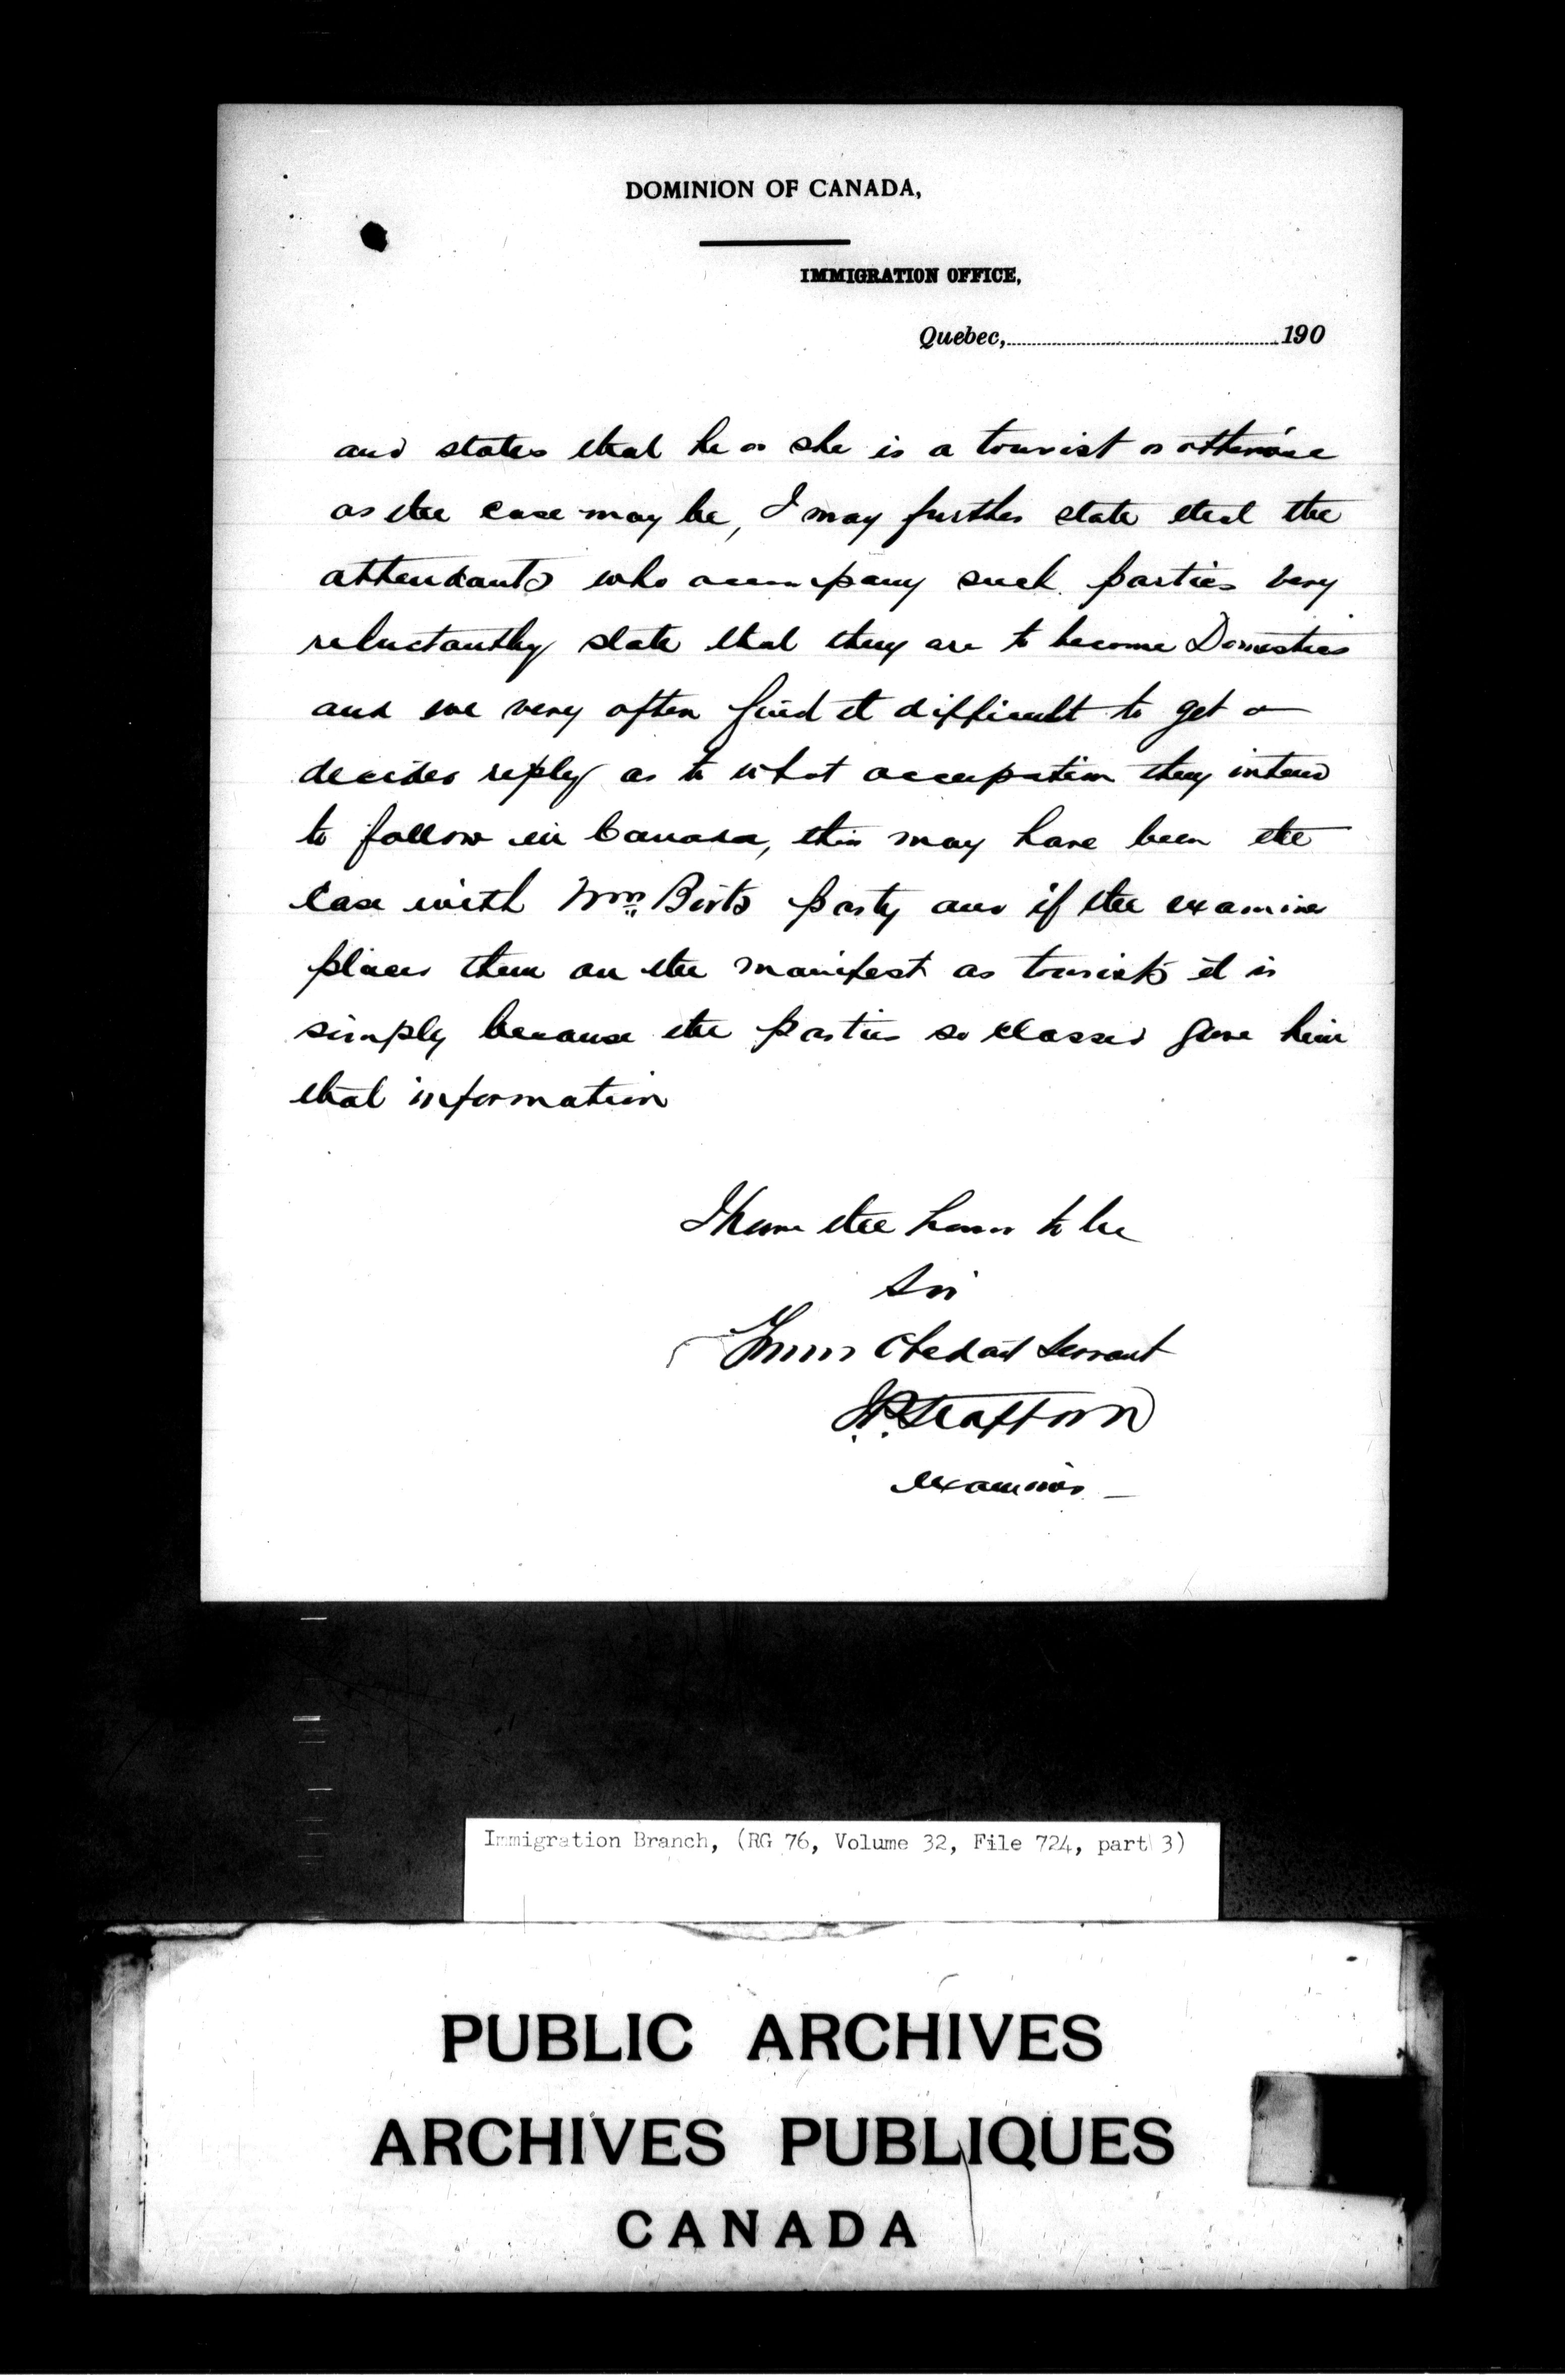 DOMINION OF CANADA,
IMMIGRATION OFFICE,
Quebec, 190
and states that he or she is a tourist or otherwise
as the case may be, I may further state that the
attendants who accompany such parties very
reluctantly state that they are to become Domestics
and we very often find it difficult to get a
decided reply as to what occupation they intend
to follow in Canada, this may have been the
case with Birts party and if the examiner
places them on the manifest as tourists it is
simply because the parties so classed gave him
that information
I have the honor to be
Sir
Your Obedient Servant
J.P. Stafford
Examiner
Immigration Branch, (RG 76, Volume 32, File 724, part 3)
PUBLIC ARCHIVES
ARCHIVES PUBLIQUES
CANADA